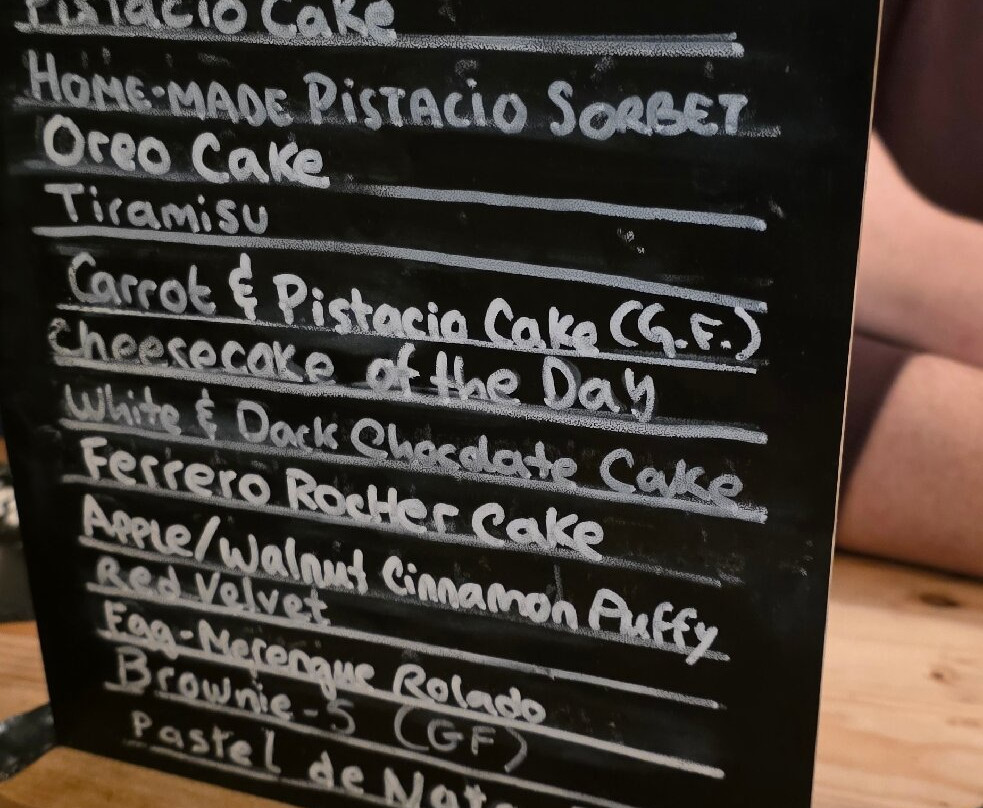 Pistacio Cake
HOME-MADE PISTACIO SORBET
Oreo Cake
Tiramisu
Carrot & Pistacio Cake (G.F.)
Cheesecake of the Day
White & Dark Chocolate Cake
Ferrero RocHer Cake
Apple/Walnut Cinnamon Puffy
Red Velvet
Egg-Merengue Rolado
Brownie-S (GF)
Pastel de Nata